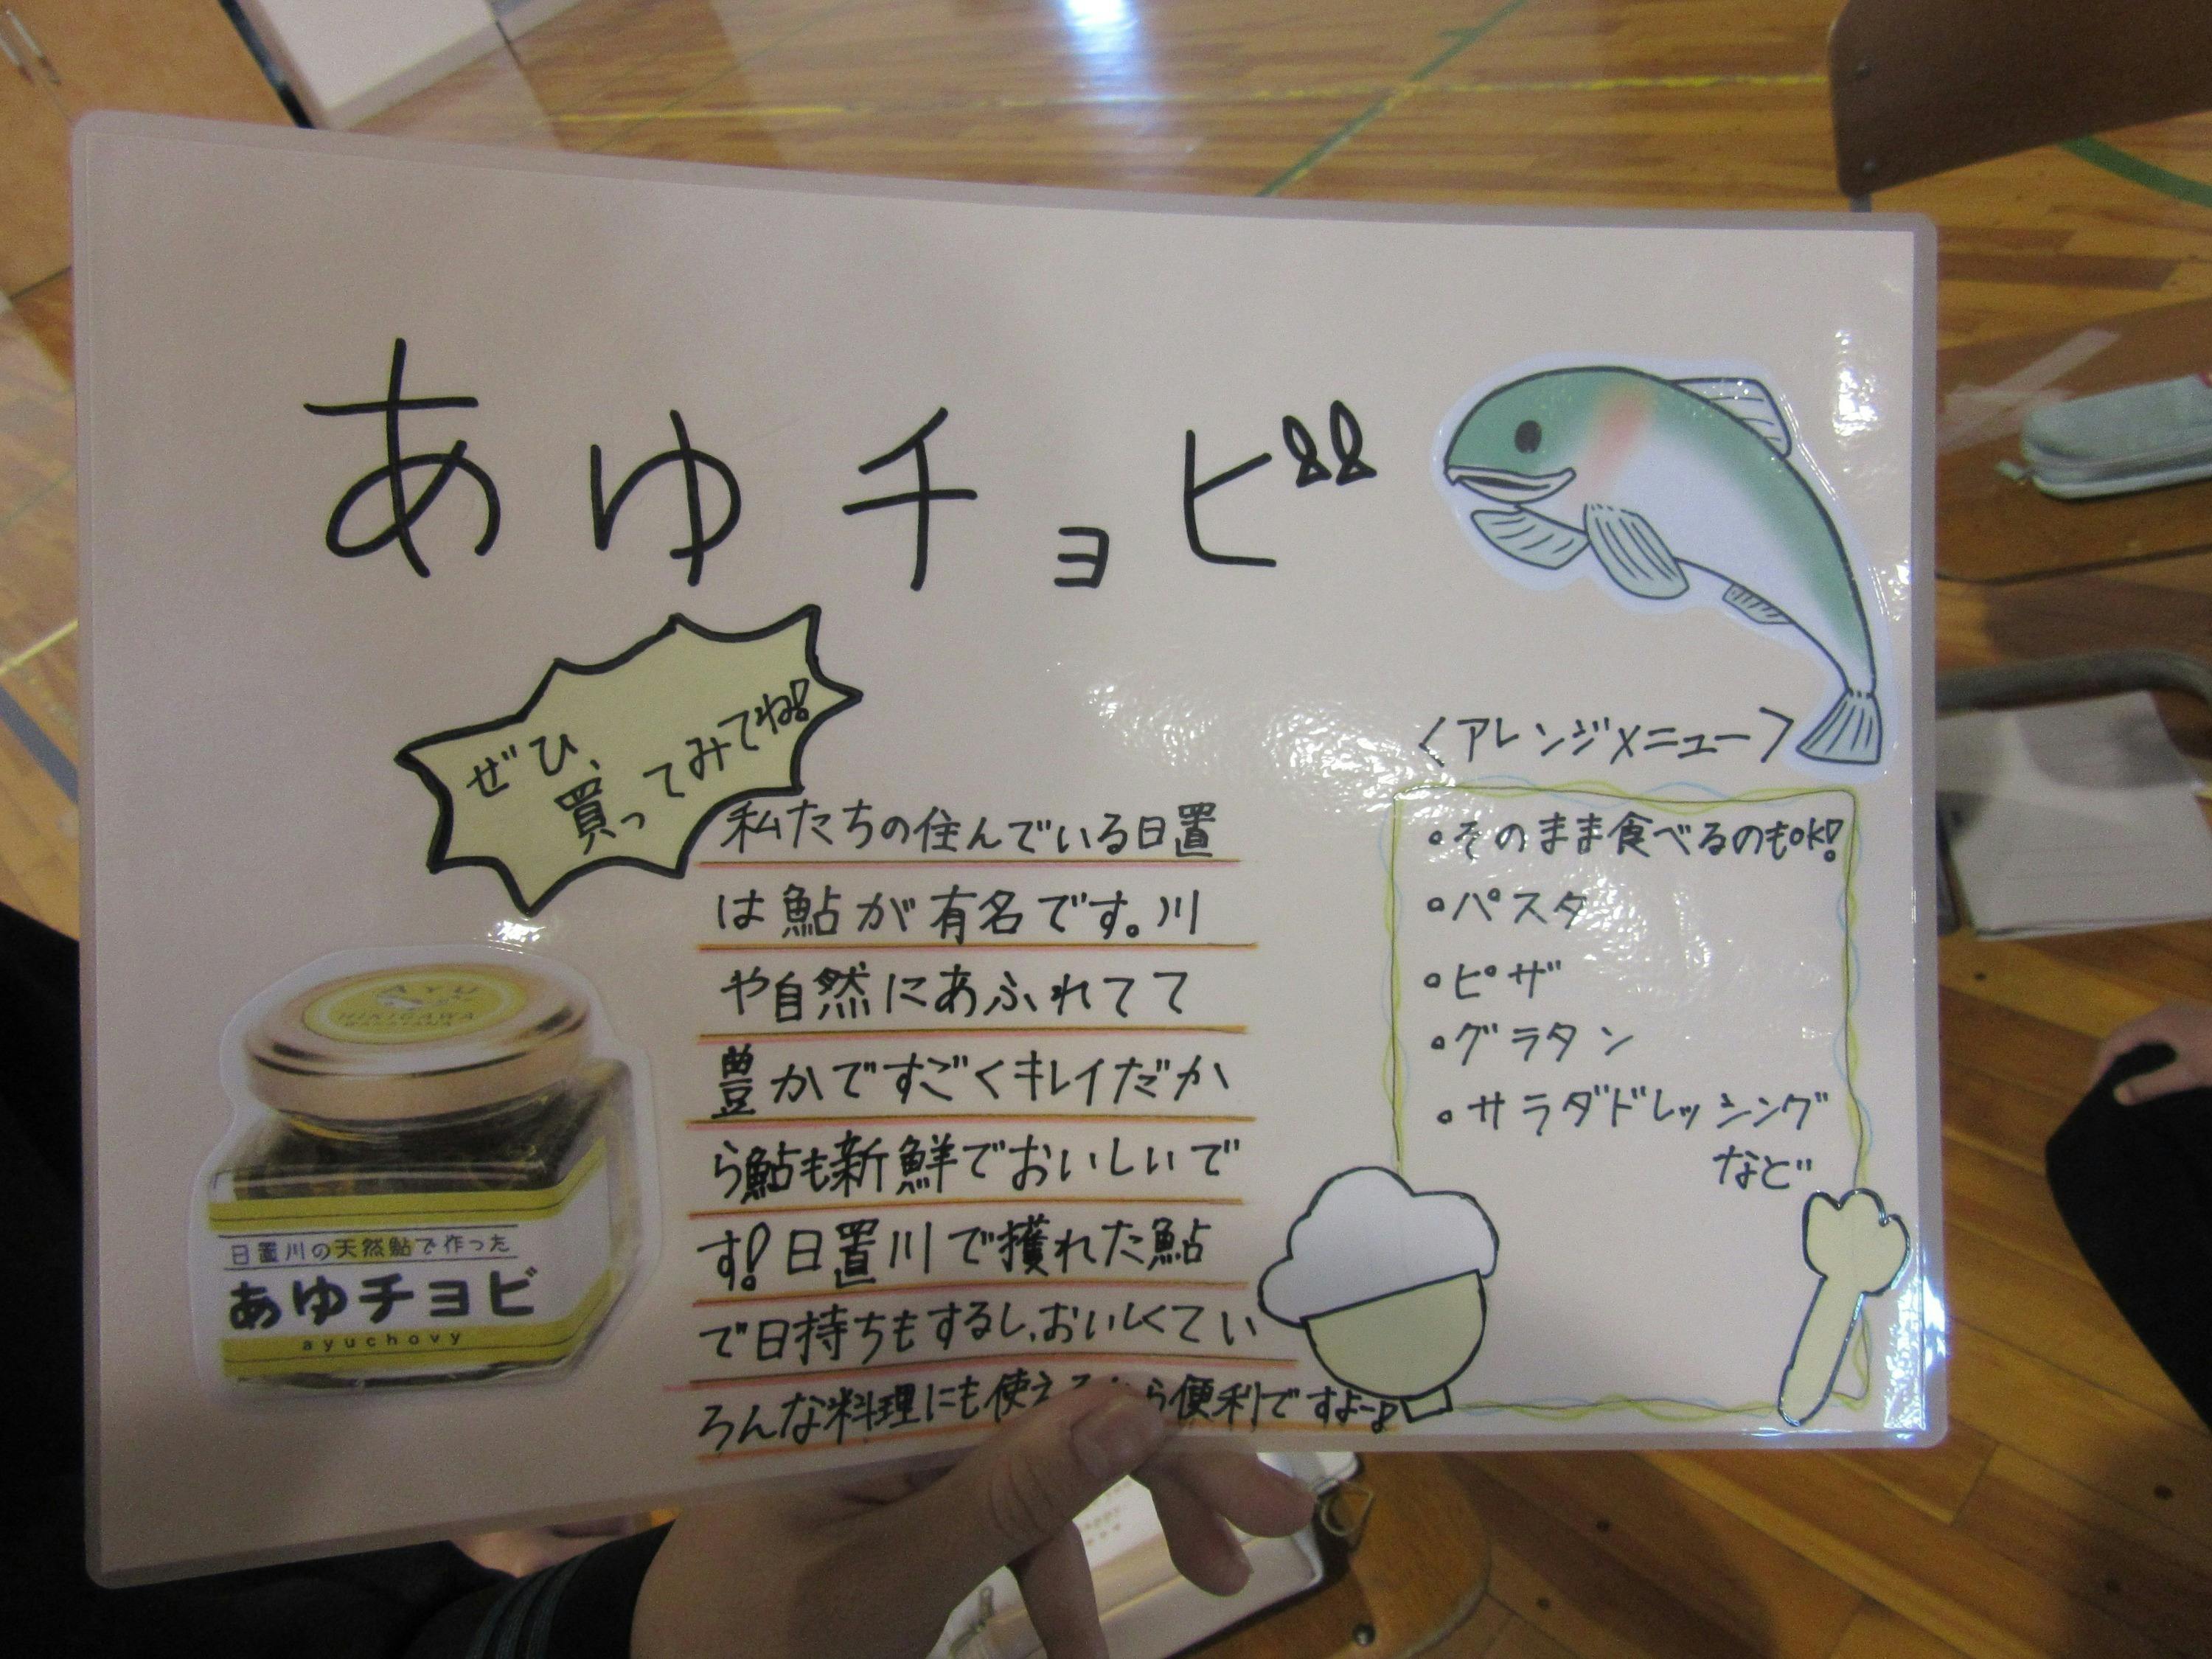 あゆチョビ
ぜひ、
買ってみてね!
私たちの住んでいる日置
は鮎が有名です。川
や自然にあふれてて
豊かですごくキレイだか
ら鮎も新鮮でおいしいで
す!日置川で獲れた鮎
で日持ちもするし、おいしくてい
ろんな料理にも使え ら便利ですよー♪
<アレンジメニュー>
・そのまま食べるのもOK!
・パスタ
・ピザ
・グラタン
・サラダドレッシング
など
AYU
HIKIGAWA
WAKAYAMA
日置川の天然鮎で作った
あゆチョビ
ayuchovy